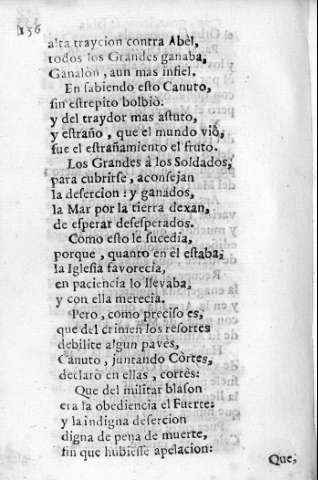 156
alta traycion contra Abèl,
todos los Grandes ganaba,
Ganalòn, aun mas infiel.
En sabiendo esto Canuto,
sin estrepito bolbiò:
y del traydor mas astuto,
y estraño, que el mundo viò,
fue el estrañamiento el fruto.
Los Grandes à los Soldados,
para cubrirse, aconsejan
la desercion: y ganados,
la Mar por la tierra dexan,
de esperar desesperados.
Como esto le sucedia,
porque, quanto en èl estaba,
la Iglesia favorecia,
en paciencia lo llevaba,
y con ella merecia.
Pero, como preciso es,
que del crimen los resortes
debilite algun pavès,
Canuto, juntando Còrtes,
declarò en ellas, cortès:
Que del militar blason
era la obediencia el Fuerte:
y la indigna desercion
digna de pena de muerte,
sin que hubiesse apelacion:
Que,